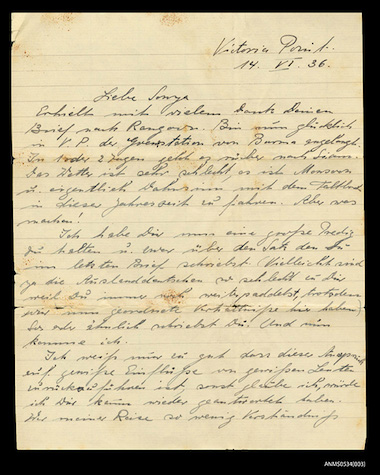 Victoria Point.
14. VI. 36.
Liebe Sonya
Erhielt mit vielem Dank Deinen
Brief nach Rangoon. Bin nun glücklich
in V.P. der Grenzstation von Burma angelangt.
In 1 oder 2 Tagen geht es rüber nach Siam.
Das Wetter ist sehr schlecht es ist Monsoon
u. eigentlich Wahnsinn mit dem Faltboot
in dieser Jahreszeit zu fahren. Aber was
machen!
Ich habe Dir nun eine grosse Predigt
zu halten u. zwar über den Satz den Du
im letzten Brief schriebst (Vielleicht sind
ja die Auslanddeutschen so schlecht zu Dir
weil Du immer noch weiterpaddelst, trotzdem
wir nun geordnete Verhältnisse hier haben)
So oder ähnlich schriebst Du. Und nun
komme ich.
Ich weiß nur zu gut dass diese
auf gewisse Einflüsse von gewissen Leuten
zurückzuführen ist, sonst glaube ich, würde
ich Dir kaum wieder geantwortet haben.
Wer meiner Reise so wenig Verständniß
ANMS0534[003]